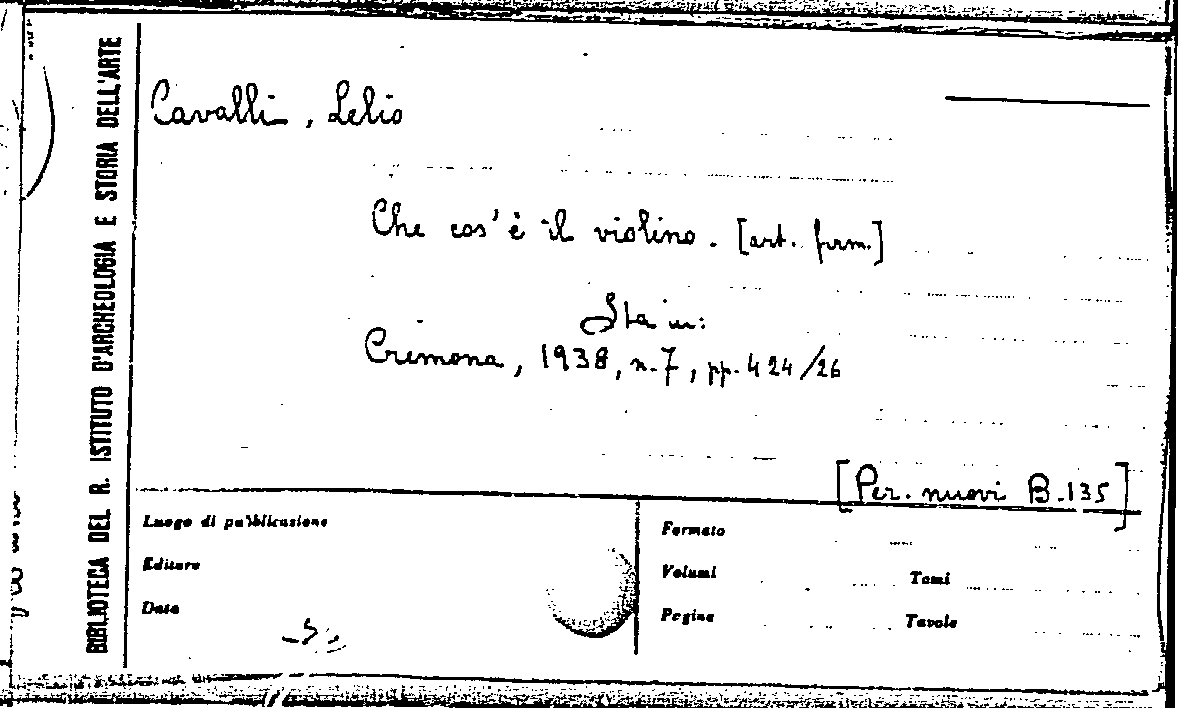 BIBLIOTECA DEL R. ISTITUTO D'ARCHEOLOGIA E STORIA DELL'ARTE
Cavalli, Lelio
Che cos'è il violino. [art. firm.]
Sta in:
Cremona, 1938, n. 7, pp. 424/26
[Per. nuovi B. 135]
Luogo di pubblicazione
Editore
Data
Formato
Volumi Tomi
Pagine Tavole